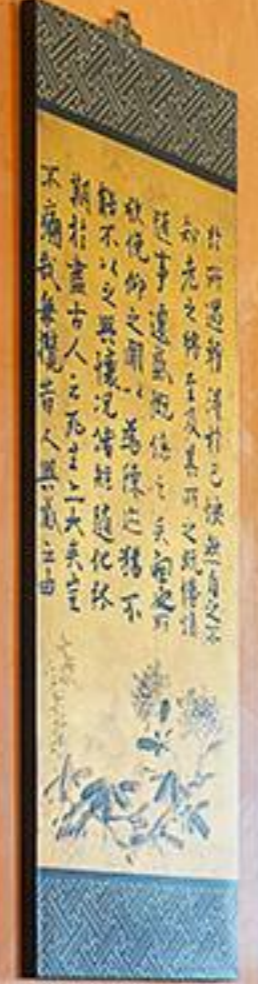 於所遇暫得於己快然自足不
知老之將至及其所之既倦情
隨事遷感慨係之矣向之所
欣俛仰之間以為陳迹猶不
能不以之興懷況脩短隨化終
期於盡古人云死生亦大矣豈
不痛哉每攬昔人興感之由